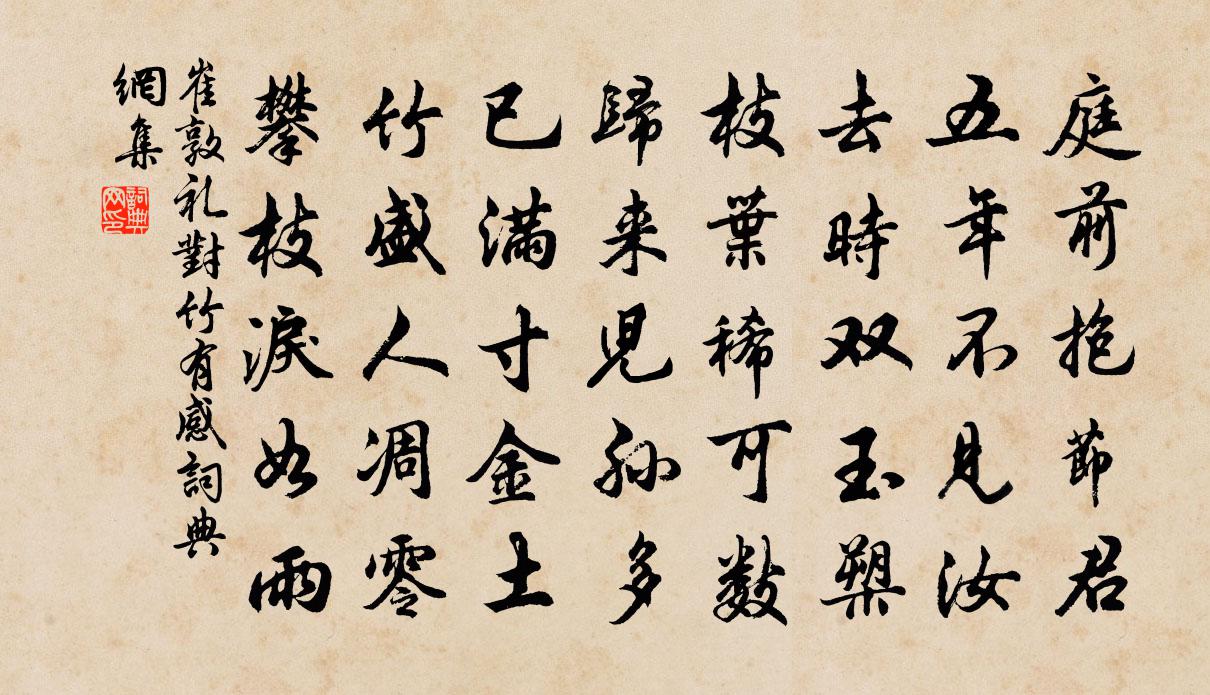 庭前抱節君
五年不見汝
去時双玉槊
枝葉稀可數
歸来見孫多
已满寸金土
竹盛人凋零
攀枝淚如雨
崔敦礼對竹有感詞典
網集
詞典
网印